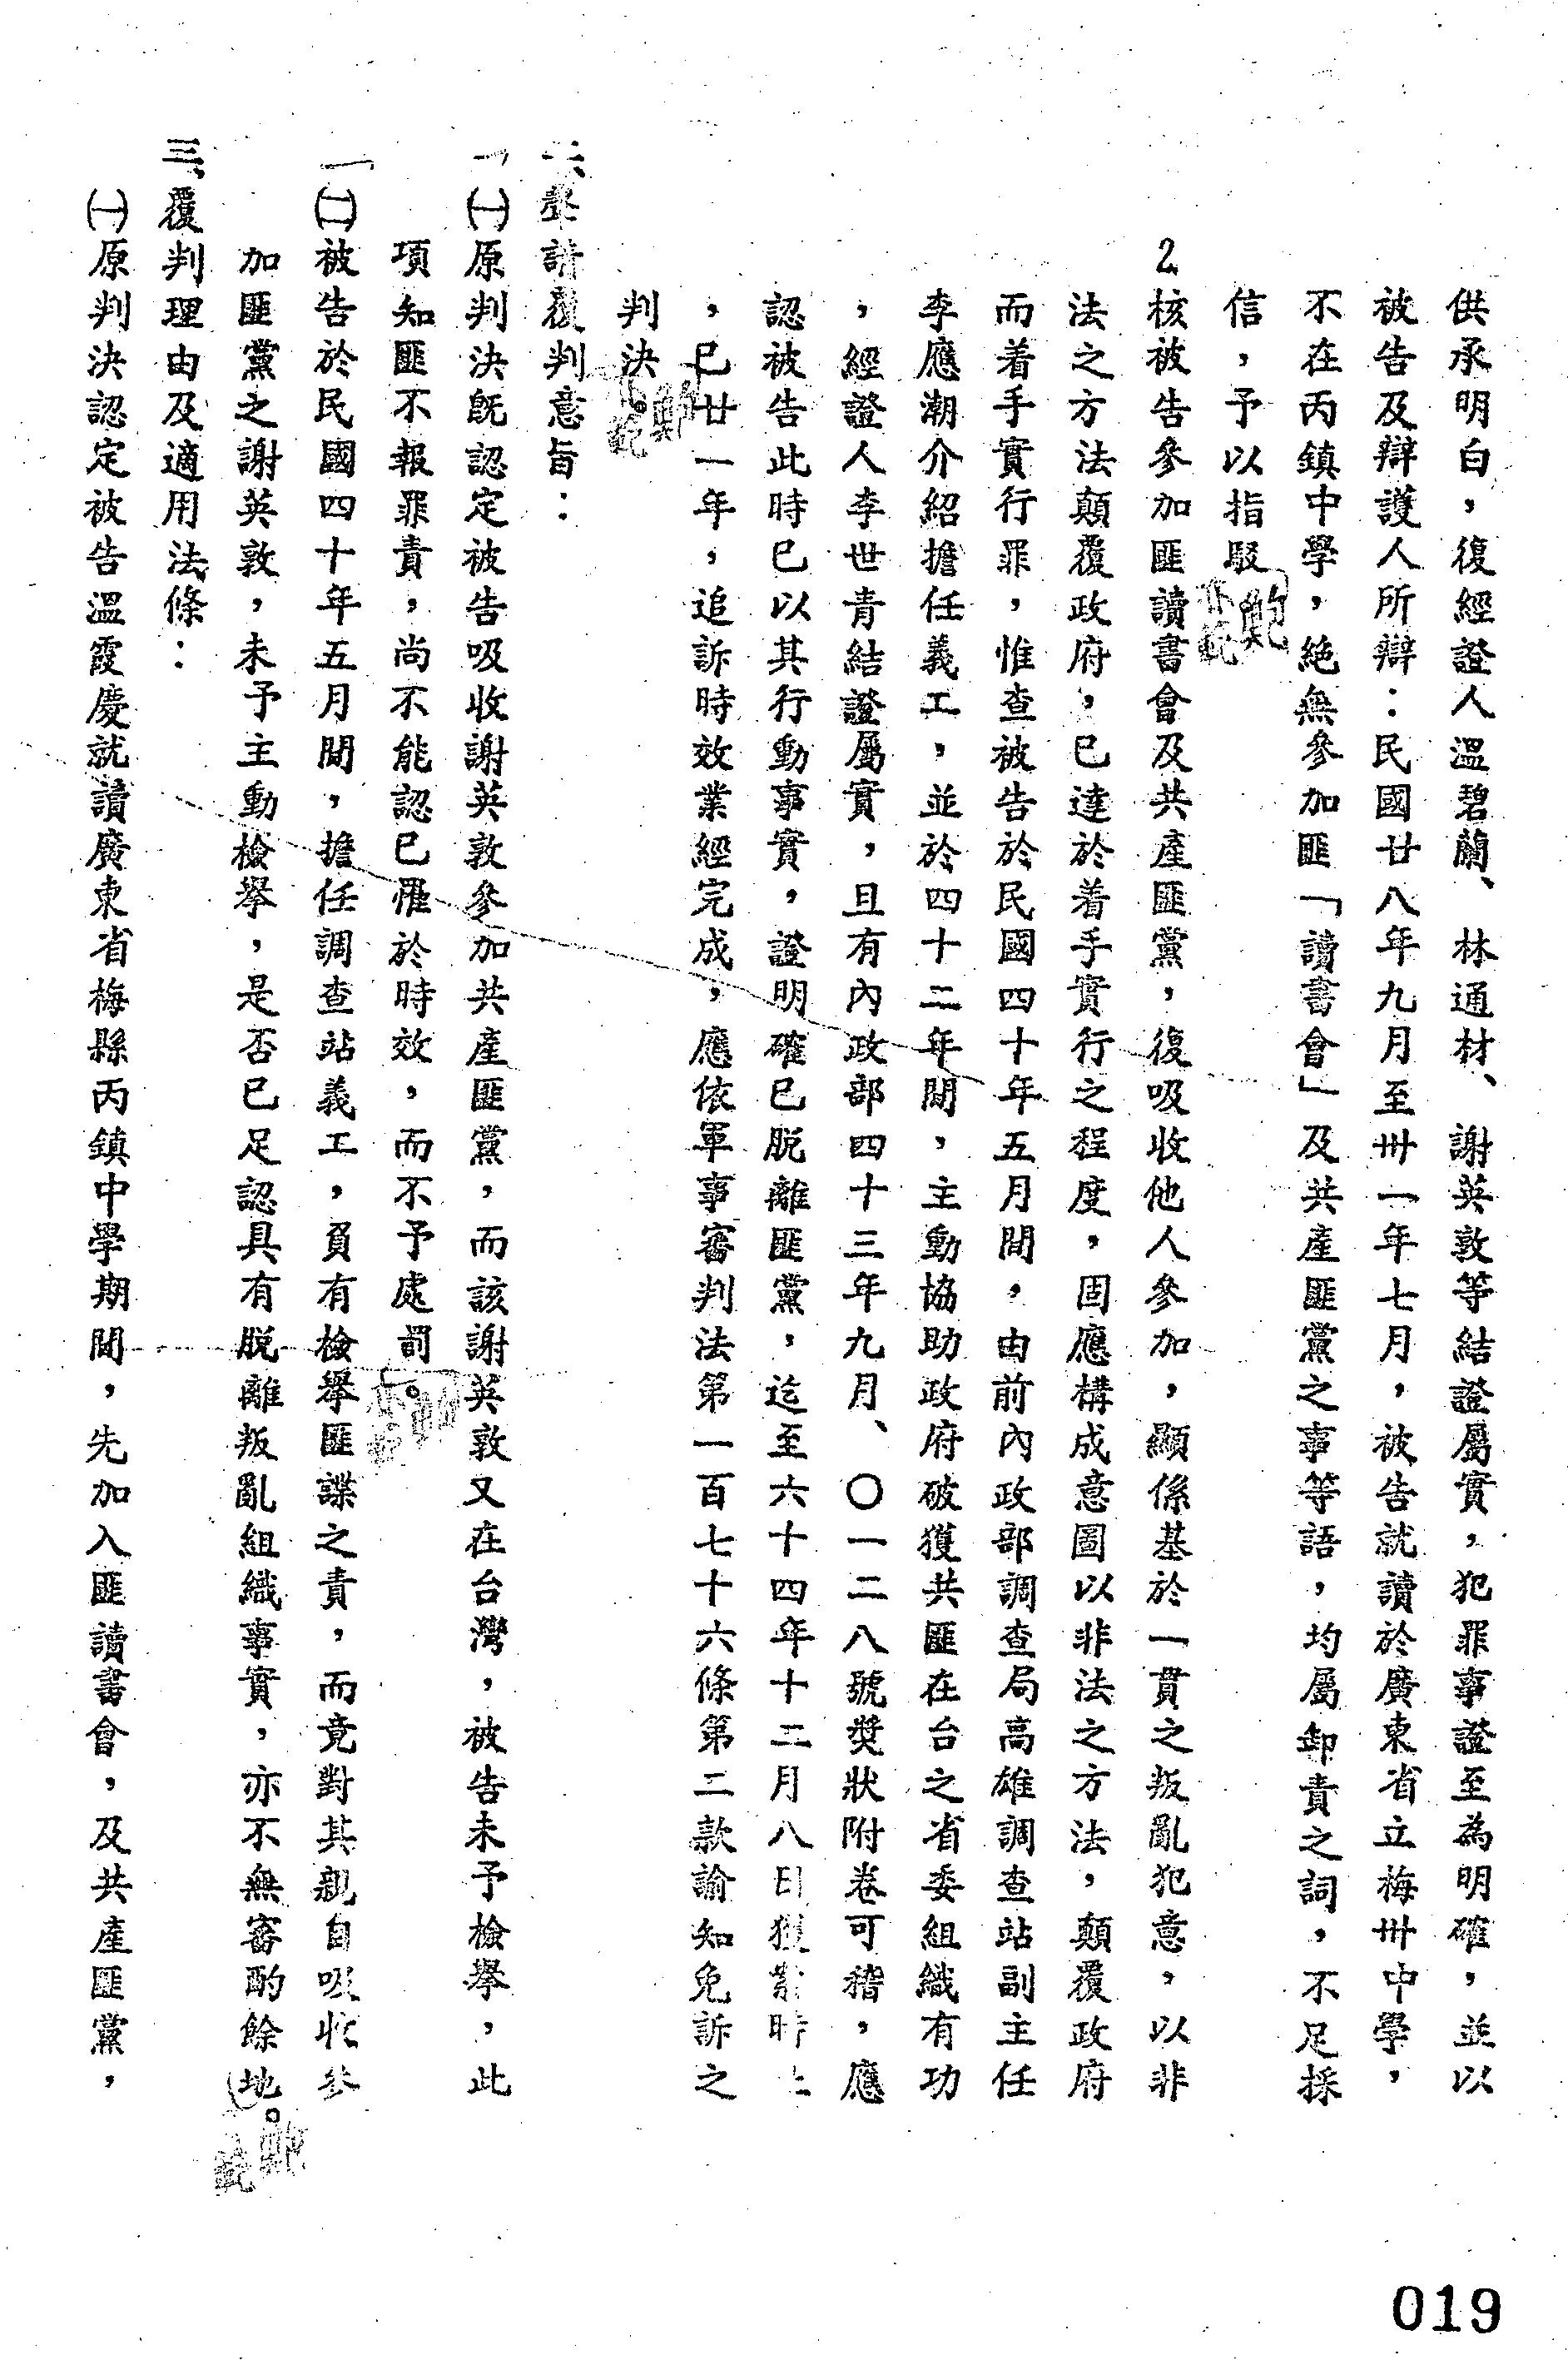 供承明白，復經證人溫碧蘭、林通材、謝英敦等結證屬實，犯罪事證至為明確，並以
被告及辯護人所辯：民國廿八年九月至卅一年七月，被告就讀於廣東省立梅卅中學，
不在丙鎮中學，絕無參加匪「讀書會」及共產匪黨之事等語，均屬卸責之詞，不足採
信，予以指駁
2.核被告參加匪讀書會及共產匪黨，復吸收他人參加，顯係基於一貫之叛亂犯意，以非
法之方法顛覆政府，已達於着手實行之程度，固應構成意圖以非法之方法，顛覆政府
而着手實行罪，惟查被告於民國四十年五月間，由前內政部調查局高雄調查站副主任
李應潮介紹擔任義工，並於四十二年間，主動協助政府破獲共匪在台之省委組織有功
，經證人李世青結證屬實，且有內政部四十三年九月、〇一二八號獎狀附卷可稽，應
認被告此時已以其行動事實，證明確已脫離匪黨，迄至六十四年十二月八日獲案時止
，已廿一年，追訴時效業經完成，應依軍事審判法第一百七十六條第二款諭知免訴之
判決。
二、聲請覆判意旨：
「㈠原判決既認定被告吸收謝英敦參加共產匪黨，而該謝英敦又在台灣，被告未予檢舉，此
項知匪不報罪責，尚不能認已罹於時效，而不予處罰」。
「㈡被告於民國四十年五月間，擔任調查站義工，負有檢舉匪諜之責，而竟對其親自吸收參
加匪黨之謝英敦，未予主動檢舉，是否已足認具有脫離叛亂組織事實，亦不無審酌餘地。
三、覆判理由及適用法條：
㈠原判決認定被告溫霞慶就讀廣東省梅縣丙鎮中學期間，先加入匪讀書會，及共產匪黨，
019